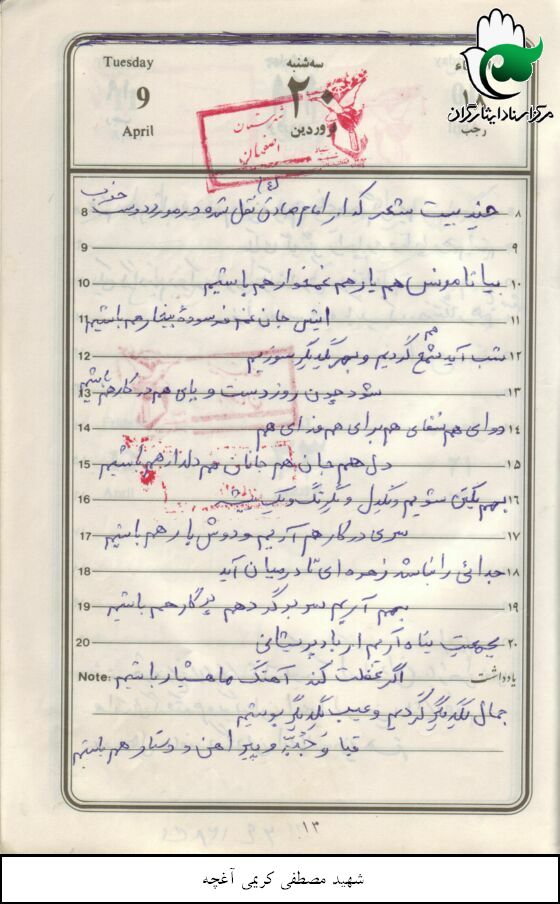 Tuesday
9
April
سه‌شنبه
۲۰
فروردین
رجب
مرکز اسناد ایثارگران
شهرستان
اصفهان
8 چند بیت شعر که از امام صادق (ع) نقل شده در مورد دوست خوب ۸
9 ۹
10 بیا تا مونس هم یار هم غمخوار هم باشیم ۱۰
11 انیس جان غم فرسودهٔ بیمار هم باشیم ۱۱
12 شب آید شمع هم گردیم و بهر یکدیگر سوزیم ۱۲
13 شود چون روز دست و پای هم در کار هم باشیم ۱۳
14 دوای هم شفای هم برای هم فدای هم ۱۴
15 دل هم جان هم جانان هم دلدار هم باشیم ۱۵
16 بهم یکتن شویم و یکدل و یکرنگ و یک ۱۶
17 سری در کار هم آریم و دوش بار هم باشیم ۱۷
18 جدائی را نباشد زهره ای تا در میان آید ۱۸
19 بهم آریم سر بر گرد هم پرگار هم باشیم ۱۹
20 بجمعیت پناه آریم از باد پریشانی ۲۰
Note: اگر غفلت کند آهنگ ما هشیار باشیم یادداشت
جمال یکدیگر گردیم و عیب یکدیگر پوشیم
قبا و جُبّه و پیراهن و دستار هم باشیم
۱۳
شهید مصطفی کریمی آغچه